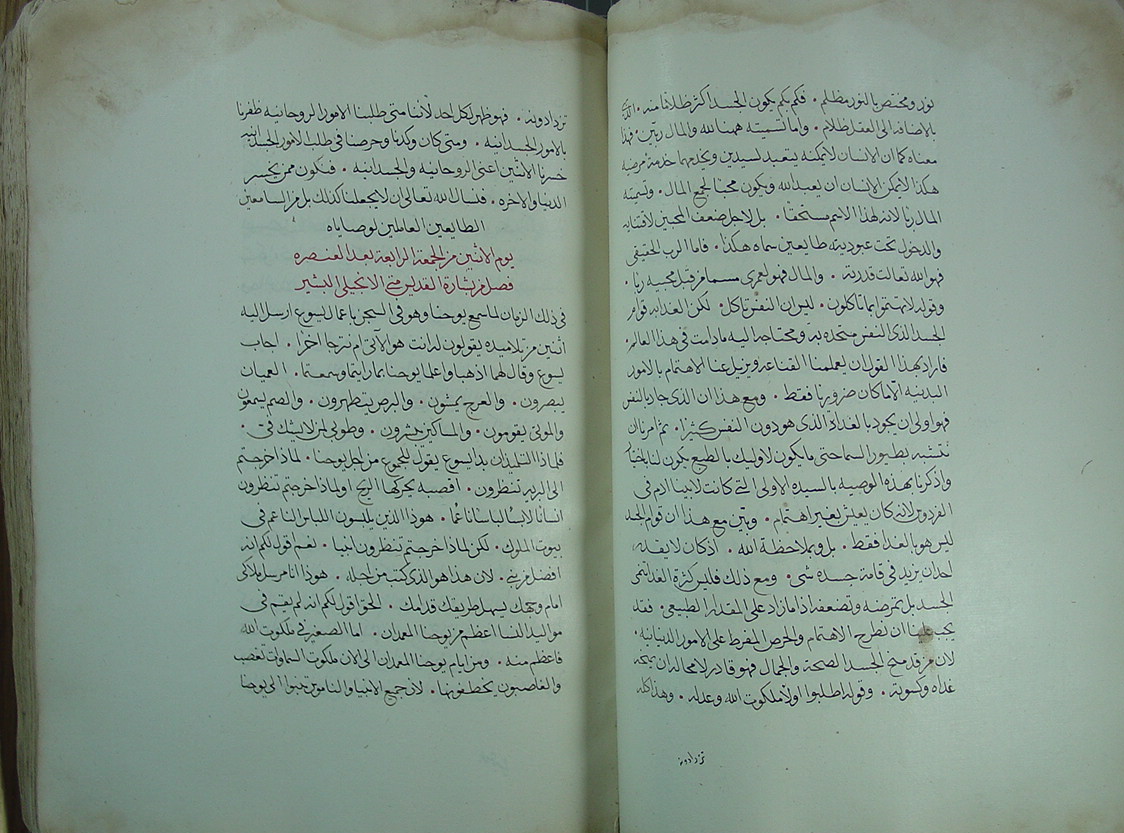 نور ومختص بالنور مظلم • فكم بكم يكون الجسد اكثر ظلاما منه •
بالاضافه الى العقل ظلام • واما تسميته همنا لله والمال ربين • فهذا
معناه كما ان الانسان لا يمكنه يتعبد لسيدين ويخدمهما خدمة مرضيه
هكذا لا يمكن الانسان ان يعبد الله ويكون محبا لجمع المال • وتسميته
المال ربا لا انه لهذا الاسم مستحقا • بل لاجل ضعف المحبين لاقتنايه
والدخول تحت عبوديته طايعين سماه هكذا • فاما الرب الحقيقى
فهو الله تعالت قدرته • والمال فهو لعمرى مسما من قبل محبيه ربا •
وقوله لا تهتموا بما تاكلون • ليس ان النفس تاكل • لكن الغذا به قوام
الجسد الذى النفس متحده به ومحتاجه اليه ما دامت فى هذا العالم •
فاراد بهذا القول ان يعلمنا القناعه ويزيل عنا الاهتمام بالامور
البدنيه الا ما كان ضروريا فقط • ومع هذا ان الذى جاد بالنفس
فهو اولى ان يجود بالغذاء الذى هو دون النفس كثيرا • ثم امرنا ان
نتشبه بطيور السما حتى ما يكون لاوليك بالطبع يكون لنا
واذكرنا بهذه الوصيه بالسيره الاولى التى كانت لابينا ادم فى
الفردوس لانه كان يعيش بغير اهتمام • وبين مع هذا ان قوام الجسد
ليس هو بالغذا فقط • بل وبملاحظة الله • اذ كان لا يقدر
احد ان يزيد فى قامة جسده شى • ومع ذلك فليس كثرة الغذا تنمى
الجسد بل تمرضه وتضعفه اذا ما زاد على المقدار الطبيعى • فقد
يجب علينا ان نطرح الاهتمام والحرص المفرط على الامور الدنيانيه •
لان من قد منح الجسد الصحة والجمال فهو قادر لا محاله ان يمنحه
غذاه وكسوته • وقوله اطلبوا اولا ملكوت الله وعدله • وهذا كله
تزدادونه
تزدادونه • فهو ظاهر لكل احد لأننا متى طلبنا الامور الروحانيه ظفرنا
بالامور الجسدانيه • ومتى كان وكدنا وحرصنا فى طلب الامور الجسدانيه
خسرنا الاثنين اعنى الروحانيه والجسدانيه • فنكون ممن يخسر
الدنيا والاخره • فنسال الله تعالى ان لا يجعلنا كذلك بل من السامعين
الطايعين العاملين لوصاياه
يوم الاثنين من الجمعة الرابعة بعد العنصره
فصل من بشارة القديس متى الانجيلى البشير
فى ذلك الزمان لما سمع يوحنا وهو فى السجن باعمال يسوع ارسل اليه
اثنين من تلاميذه يقولون له انت هو الآتى ام نترجا اخرا • اجاب
يسوع وقال لهما اذهبا واعلما يوحنا بما رايتما وسمعتما • العميان
يبصرون • والعرج يمشون • والبرص يتطهرون • والصم يسمعون
والموتى يقومون • والمساكين يبشرون • وطوبى لمن لا يشك فىّ •
فلما ذهب التلميذان بدا يسوع يقول للجموع من اجل يوحنا • لماذا خرجتم
الى البريه تنظرون • اقصبه يحركها الريح او لماذا خرجتم تنظرون
انسانا لابسا لباسا ناعما • هوذا الذين يلبسون اللباس الناعم فى
بيوت الملوك • لكن لماذا خرجتم تنظرون انبيا • نعم اقول لكم انه
افضل من نبى • لان هذا هو الذى كتب من اجله • هوذا انا مرسل ملاكى
امام وجهك يسهل طريقك قدامك • الحق اقول لكم انه لم يقم فى
مواليد النسا اعظم من يوحنا المعمدان • اما الصغير فى ملكوت الله
فاعظم منه • ومن ايام يوحنا المعمدان الى الان ملكوت السماوات تغصب
والغاصبون يخطفونها • لان جميع الانبيا والناموس تنبوا الى يوحنا